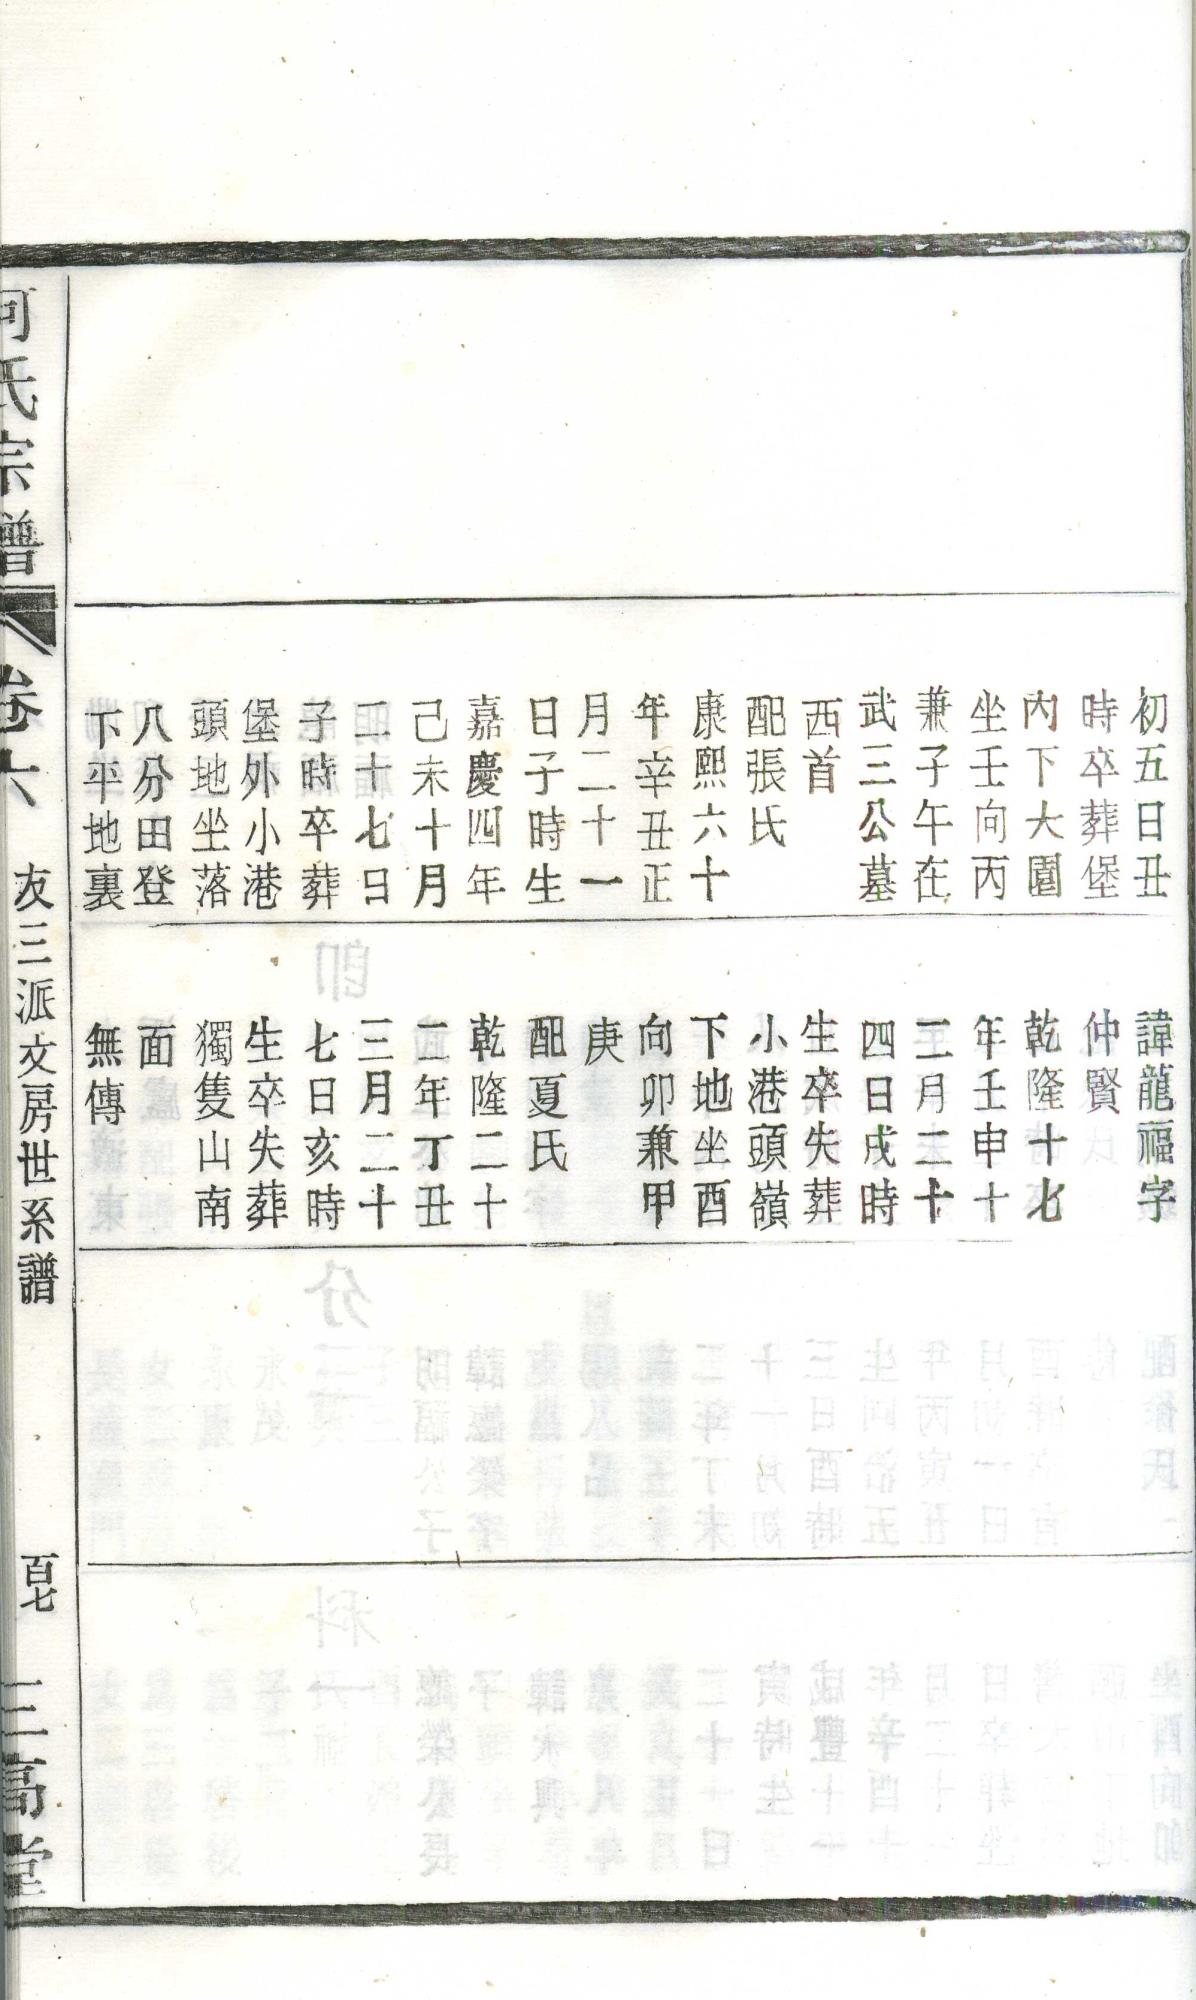 初五日丑
時卒葬堡
內下大園
坐壬向丙
兼子午在
武三公墓
西首
配張氏
康熙六十
年辛丑正
月二十一
日子時生
嘉慶四年
己未十月
二十七日
子時卒葬
堡外小港
頭地坐落
八分田登
下平地裏
諱龍福字
仲賢
乾隆十七
年壬申十
二月二十
四日戌時
生卒失葬
小港頭嶺
下地坐酉
向卯兼甲
庚
配夏氏
乾隆二十
二年丁丑
三月二十
七日亥時
生卒失葬
獨隻山南
面
無傳
何氏宗譜
卷六
友三派文房世系譜
百七
三高堂